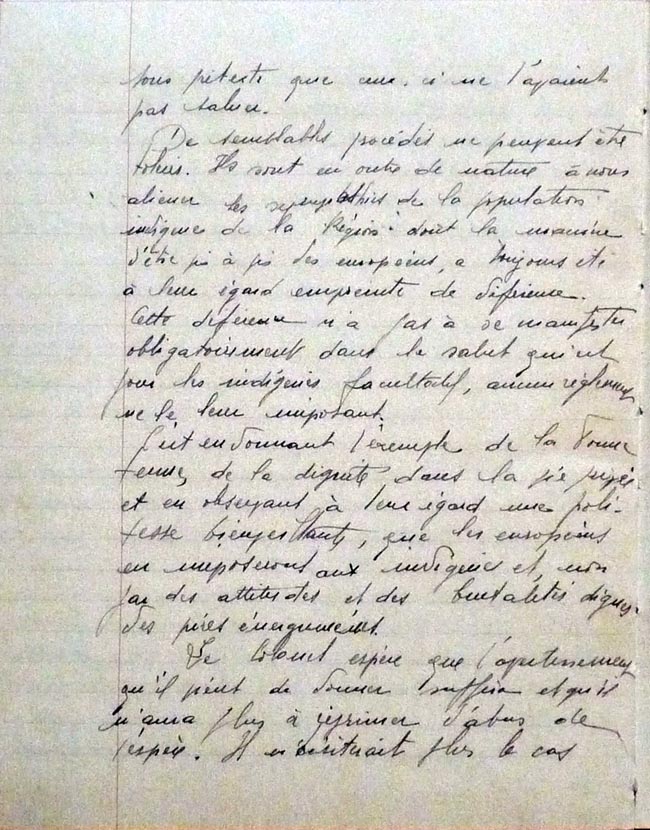 sous prétexte que ceux-ci ne l'avaient
pas salué.
De semblables procédés ne peuvent être
tolérés. Ils sont en outre de nature à nous
aliéner les sympathies de la population
indigène de la Région dont la manière
d'être vis à vis des européens, a toujours été
à leur égard empreinte de déférence.
Cette déférence n'a pas à se manifester
obligatoirement dans le salut qui est
pour les indigènes facultatif, aucun règlement
ne le leur imposant.
C'est en donnant l'exemple de la bonne
tenue, de la dignité dans la vie privée
et en observant à leur égard une poli-
tesse bienveillante, que les européens
en imposeront aux indigènes et non
par des attitudes et des brutalités dignes
des pires énergumènes.
Le Colonel espère que l'avertissement
qu'il vient de donner suffira et qu'il
n'aura plus à réprimer d'abus de
l'espèce. Il n'hésiterait plus le cas